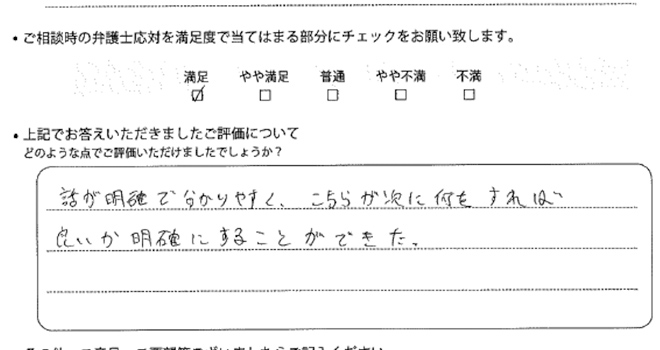 ・ご相談時の弁護士応対を満足度で当てはまる部分にチェックをお願い致します。
満足 やや満足 普通 やや不満 不満
☑ □ □ □ □
・上記でお答えいただきましたご評価について
どのような点でご評価いただけましたでしょうか？
話が明確で分かりやすく、こちらが次に何をすれば
良いか明確にすることができた。